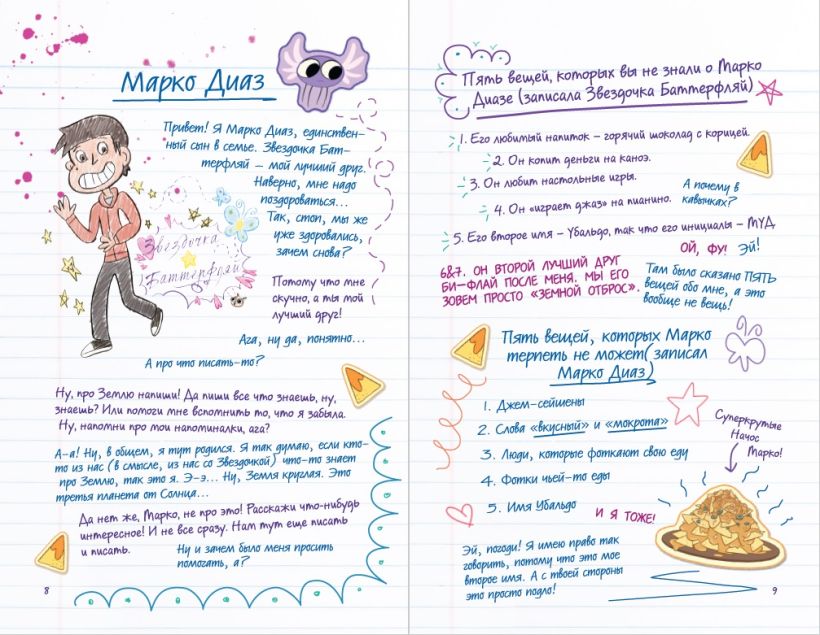 Марко Диаз
Привет! Я Марко Диаз, единствен-
ный сын в семье. Звездочка Бат-
терфляй – мой лучший друг.
Наверно, мне надо
поздороваться...
Так, стоп, мы же
уже здоровались,
зачем снова?
Звездочка
Баттерфляй
Потому что мне
скучно, а ты мой
лучший друг!
Ага, ну да, понятно...
А про что писать-то?
Ну, про Землю напиши! Да пиши все что знаешь, ну,
знаешь? Или помоги мне вспомнить то, что я забыла.
Ну, напомни про мои напоминалки, ага?
А-а! Ну, в общем, я тут родился. Я так думаю, если кто-
то из нас (в смысле, из нас со Звездочкой) что-то знает
про Землю, так это я. Э-э... Ну, Земля круглая. Это
третья планета от Солнца...
Да нет же, Марко, не про это! Расскажи что-нибудь
интересное! И не все сразу. Нам тут еще писать
и писать.
Ну и зачем было меня просить
помогать, а?
8
Пять вещей, которых вы не знали о Марко
Диазе (записала Звездочка Баттерфляй)
1. Его любимый напиток – горячий шоколад с корицей.
2. Он копит деньги на каноэ.
3. Он любит настольные игры.
А почему в
кавычках?
4. Он «играет джаз» на пианино.
5. Его второе имя – Убальдо, так что его инициалы – МУД
ОЙ, ФУ!
Эй!
6&7. ОН ВТОРОЙ ЛУЧШИЙ ДРУГ
БИ-ФЛАЙ ПОСЛЕ МЕНЯ. МЫ ЕГО
ЗОВЕМ ПРОСТО «ЗЕМНОЙ ОТБРОС».
Там было сказано ПЯТЬ
вещей обо мне, а это
вообще не вещь!
Пять вещей, которых Марко
терпеть не может(записал
Марко Диаз)
1. Джем-сейшены
2. Слова «вкусный» и «мокрота»
3. Люди, которые фоткают свою еду
4. Фотки чьей-то еды
5. Имя Убальдо
И Я ТОЖЕ!
Суперкрутые
Начос
Марко!
Эй, погоди! Я имею право так
говорить, потому что это мое
второе имя. А с твоей стороны
это просто подло!
9